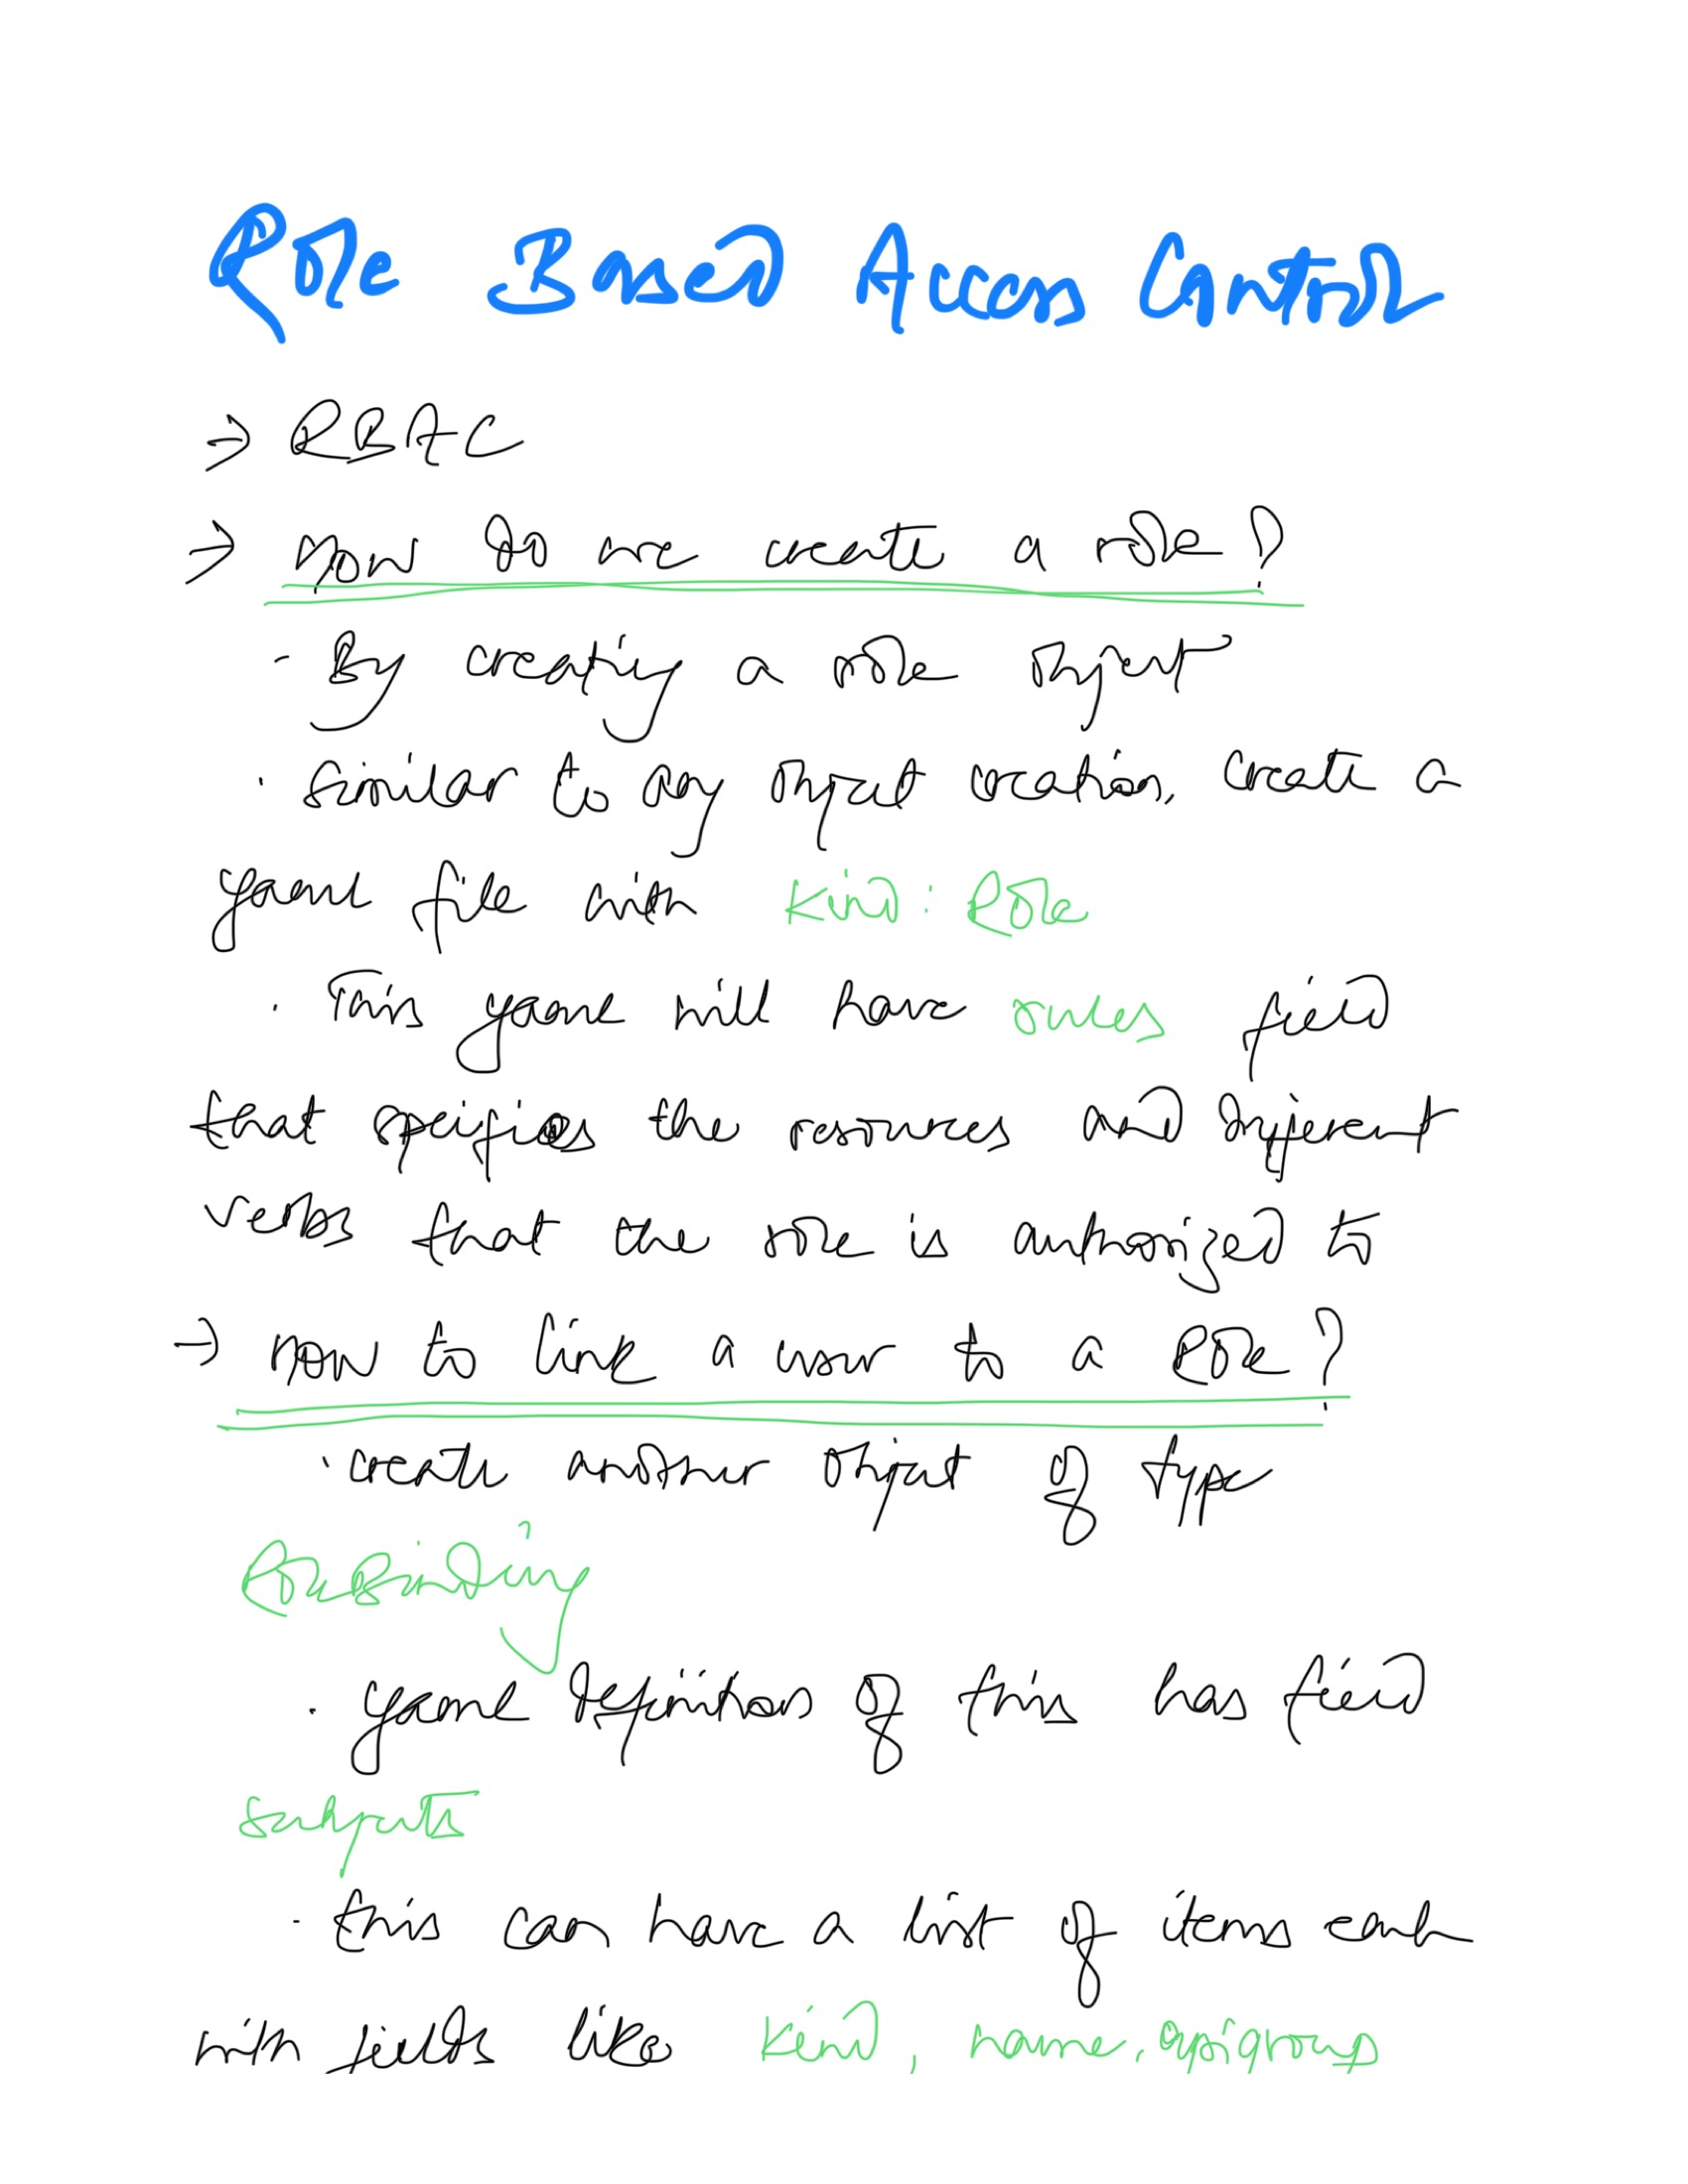 Role Based Access Control
⇒ RBAC
→ How do we create a role?
· By creating a role object
· similar to any object creation, create a
yaml file with kind: Role
· This yaml will have rules field
that specifies the resources and different
verbs that the role is authorized to
→ How to link a user to a Role?
· create another object of type
RoleBinding
· yaml definition of this has field
subjects
· this can have a list of items each
with fields like kind, name, apigroup